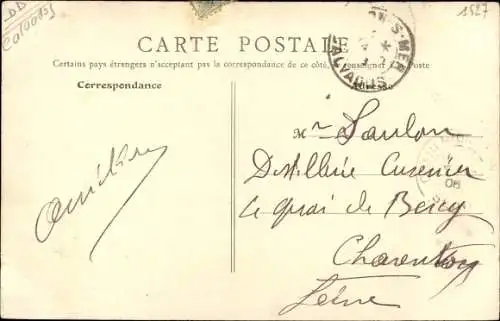 DD
Calvados
1527
CARTE POSTALE
Certains pays étrangers n'acceptant pas la correspondance de ce côté, se renseigner à la Poste
Correspondance
Adresse
S-MER
CALVADOS
Mr Saulon
Distillerie Cusenier
le quai de Bercy
Charenton
Seine
Amitiés
06